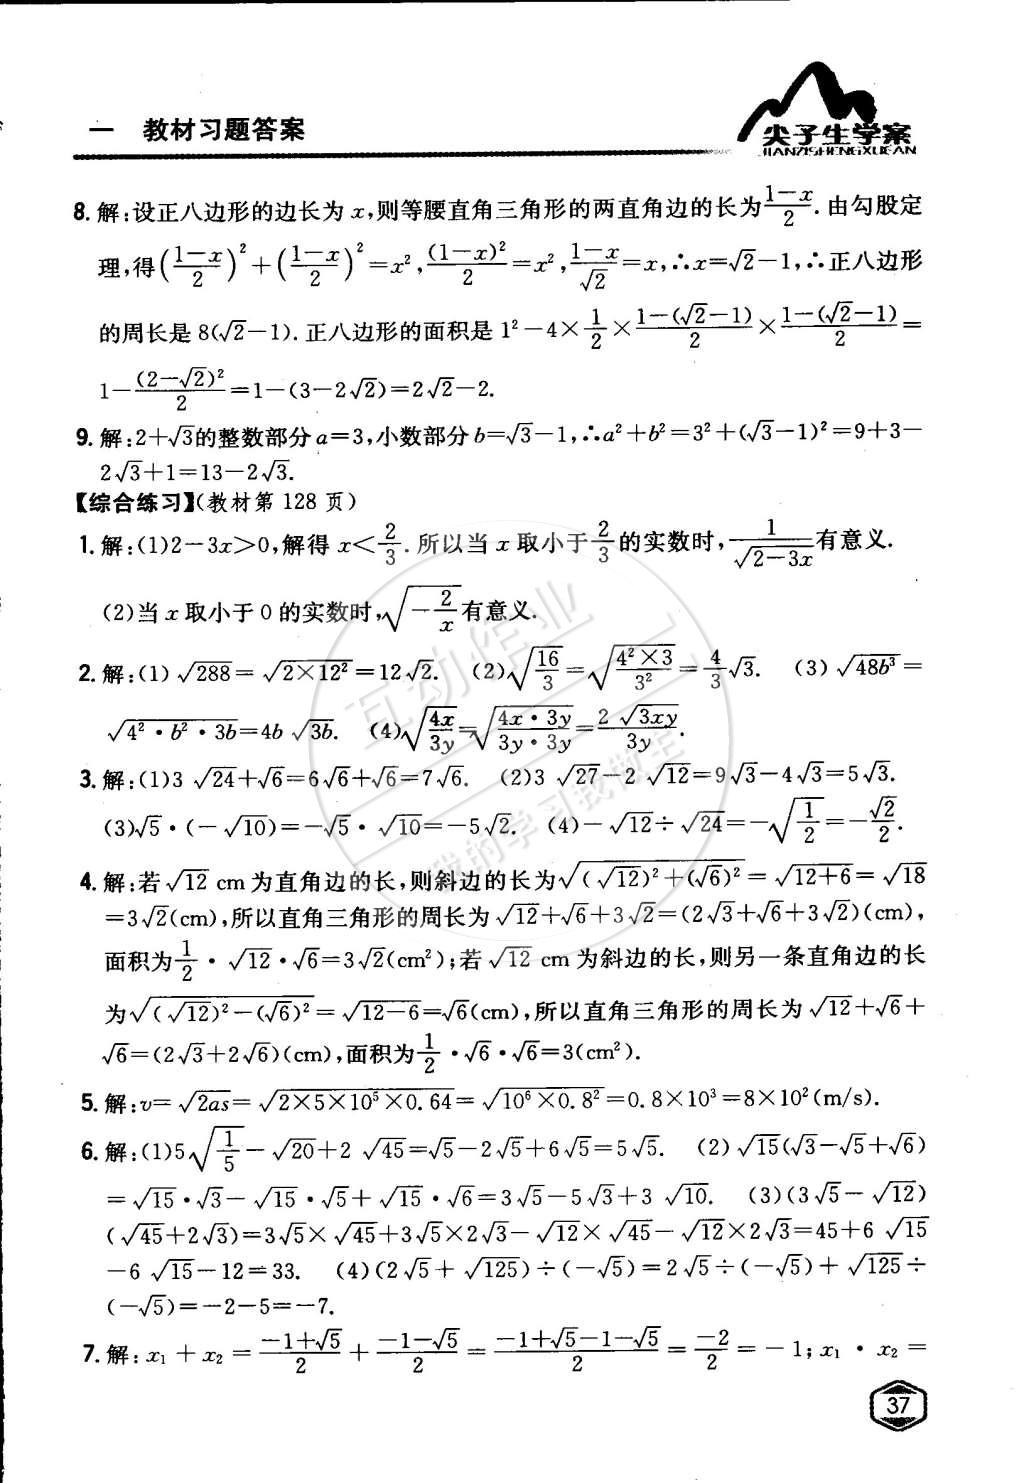 一 教材习题答案
尖子生学案
JIANZISHENGXUEAN
8. 解:设正八边形的边长为 x,则等腰直角三角形的两直角边的长为(1−x)/2. 由勾股定
理,得((1−x)/2)²+((1−x)/2)²=x²,(1−x)²/2=x²,(1−x)/√2=x,∴x=√2−1,∴正八边形
的周长是 8(√2−1). 正八边形的面积是 1²−4×1/2×(1−(√2−1))/2×(1−(√2−1))/2=
1−(2−√2)²/2=1−(3−2√2)=2√2−2.
9. 解:2+√3的整数部分 a=3,小数部分 b=√3−1,∴a²+b²=3²+(√3−1)²=9+3−
2√3+1=13−2√3.
【综合练习】(教材第 128 页)
1. 解:(1)2−3x>0,解得 x<2/3. 所以当 x 取小于2/3的实数时,1/√(2−3x)有意义.
(2)当 x 取小于 0 的实数时,√(−2/x)有意义.
2. 解:(1)√288=√(2×12²)=12√2. (2)√(16/3)=√((4²×3)/3²)=4/3√3. (3)√(48b³)=
√(4²·b²·3b)=4b√(3b). (4)√(4x/3y)=√((4x·3y)/(3y·3y))=2√(3xy)/3y.
3. 解:(1)3√24+√6=6√6+√6=7√6. (2)3√27−2√12=9√3−4√3=5√3.
(3)√5·(−√10)=−√5·√10=−5√2. (4)−√12÷√24=−√(1/2)=−√2/2.
4. 解:若√12 cm 为直角边的长,则斜边的长为√((√12)²+(√6)²)=√(12+6)=√18
=3√2(cm),所以直角三角形的周长为√12+√6+3√2=(2√3+√6+3√2)(cm),
面积为1/2·√12·√6=3√2(cm²);若√12 cm 为斜边的长,则另一条直角边的长
为√((√12)²−(√6)²)=√(12−6)=√6(cm),所以直角三角形的周长为√12+√6+
√6=(2√3+2√6)(cm),面积为1/2·√6·√6=3(cm²).
5. 解:v=√(2as)=√(2×5×10⁵×0.64)=√(10⁶×0.8²)=0.8×10³=8×10²(m/s).
6. 解:(1)5√(1/5)−√20+2√45=√5−2√5+6√5=5√5. (2)√15(√3−√5+√6)
=√15·√3−√15·√5+√15·√6=3√5−5√3+3√10. (3)(3√5−√12)
(√45+2√3)=3√5×√45+3√5×2√3−√12×√45−√12×2√3=45+6√15
−6√15−12=33. (4)(2√5+√125)÷(−√5)=2√5÷(−√5)+√125÷
(−√5)=−2−5=−7.
7. 解:x₁+x₂=(−1+√5)/2+(−1−√5)/2=(−1+√5−1−√5)/2=−2/2=−1;x₁·x₂=
37
互动作业